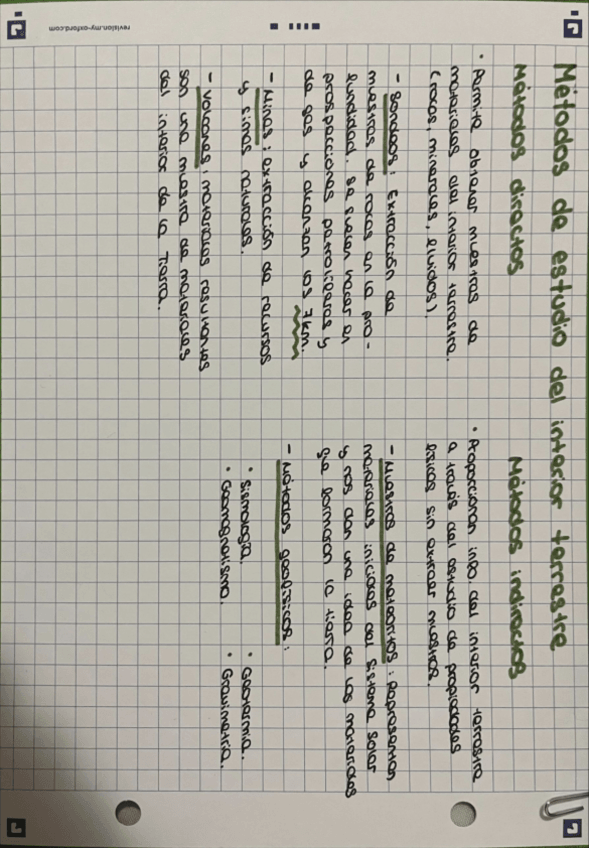 Métodos de estudio del interior terrestre
Métodos directos
· Permite obtener muestras de
materiales del interior terrestre.
(rocas, minerales, fluidos).
- Sondeos: Extracción de
muestras de rocas en la pro-
fundidad. Se suelen hacer en
prospecciones petrolíferas y
de gas y alcanzan los 7km.
- Minas: extracción de recursos
y simas naturales.
- Volcanes: materiales resultantes
son una muestra de materiales
del interior de la Tierra.
Métodos indirectos
· Proporcionan info del interior terrestre
a través del estudio de propiedades
físicas sin extraer muestras.
- Muestras de meteoritos: Representan
materiales iniciales del sistema solar
y nos dan una idea de los materiales
que formaron la tierra.
- Métodos geofísicos:
· Sismología. · Geotermia.
· Geomagnetismo. · Gravimetría.
revision.my-oxford.com